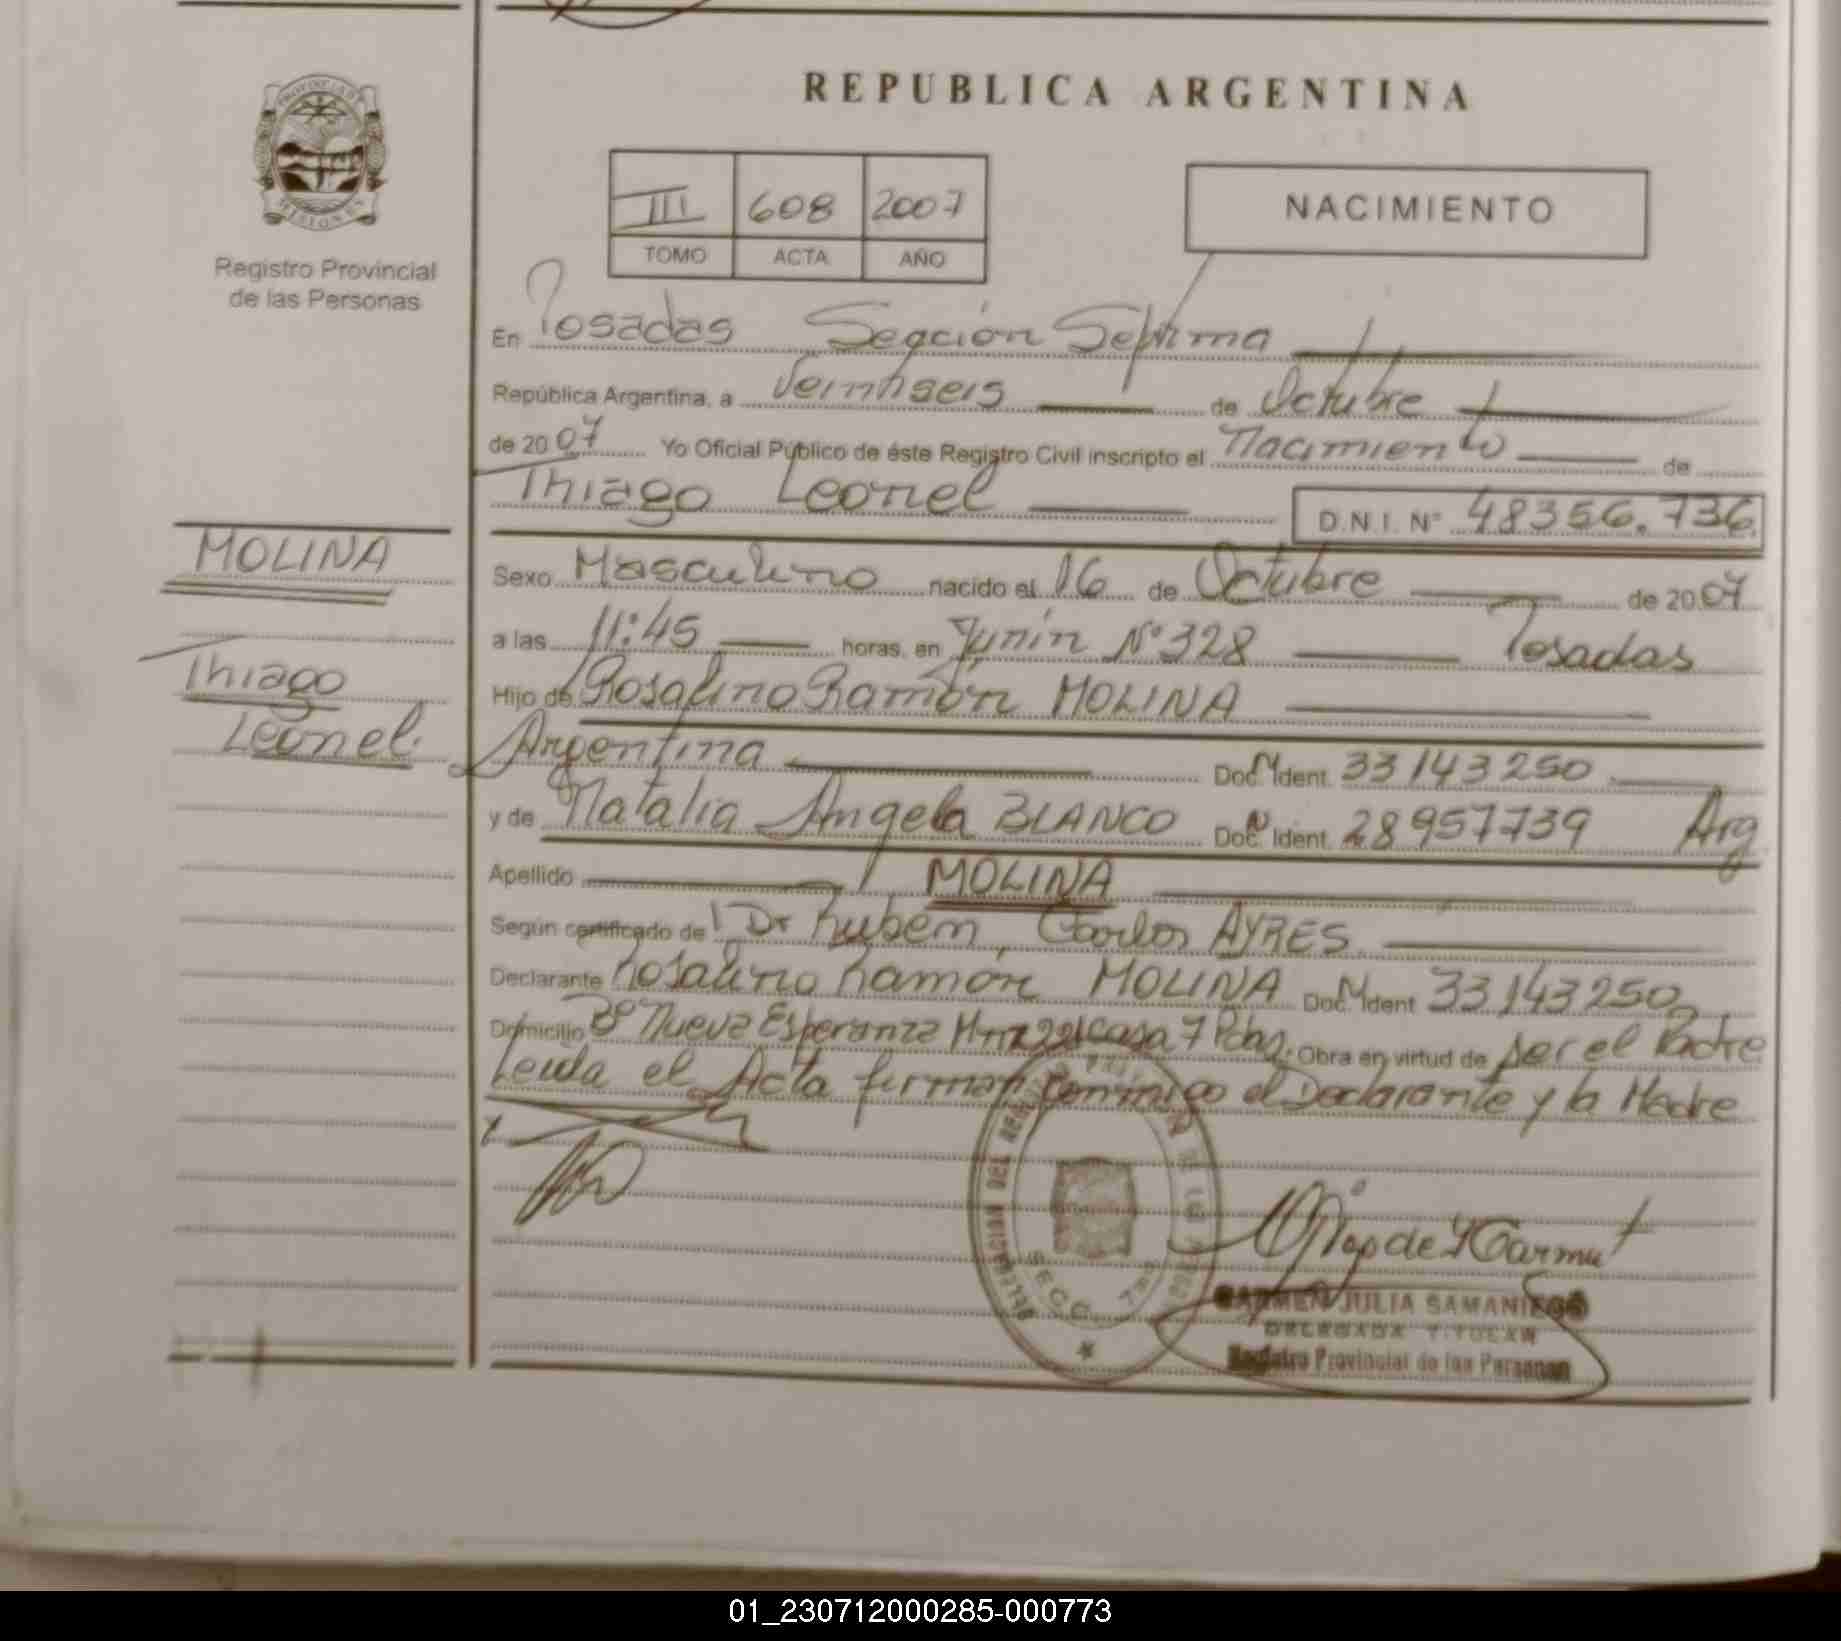 REPUBLICA ARGENTINA
PROVINCIA DE
MISIONES
Registro Provincial
de las Personas
III 608 2007
TOMO ACTA AÑO
NACIMIENTO
En Posadas Sección Septima
República Argentina, a Veintiseis de Octubre
de 2007 Yo Oficial Público de éste Registro Civil inscripto el Nacimiento de
Thiago Leonel D.N.I. N° 48356.736
MOLINA
Thiago
Leonel.
Sexo Masculino nacido el 16 de Octubre de 2007
a las 11:45 horas, en Junín N° 328 Posadas
Hijo de Rosalino Ramón MOLINA
Argentina Doc. N Ident. 33143250
y de Natalia Angela BLANCO Doc. N Ident. 28957739 Arg
Apellido MOLINA
Según certificado de Dr Rubén, Carlos AYRES
Declarante Rosalino Ramón MOLINA Doc. N Ident 33143250
Domicilio Bº Nueva Esperanza Casa 7 Pdas. Obra en virtud de ser el Padre
Leida el Acta firman conmigo el Declarante y la Madre
SECC. 7ma
CARMEN JULIA SAMANIEGO
DELEGADA TITULAR
Registro Provincial de las Personas
01_230712000285-000773